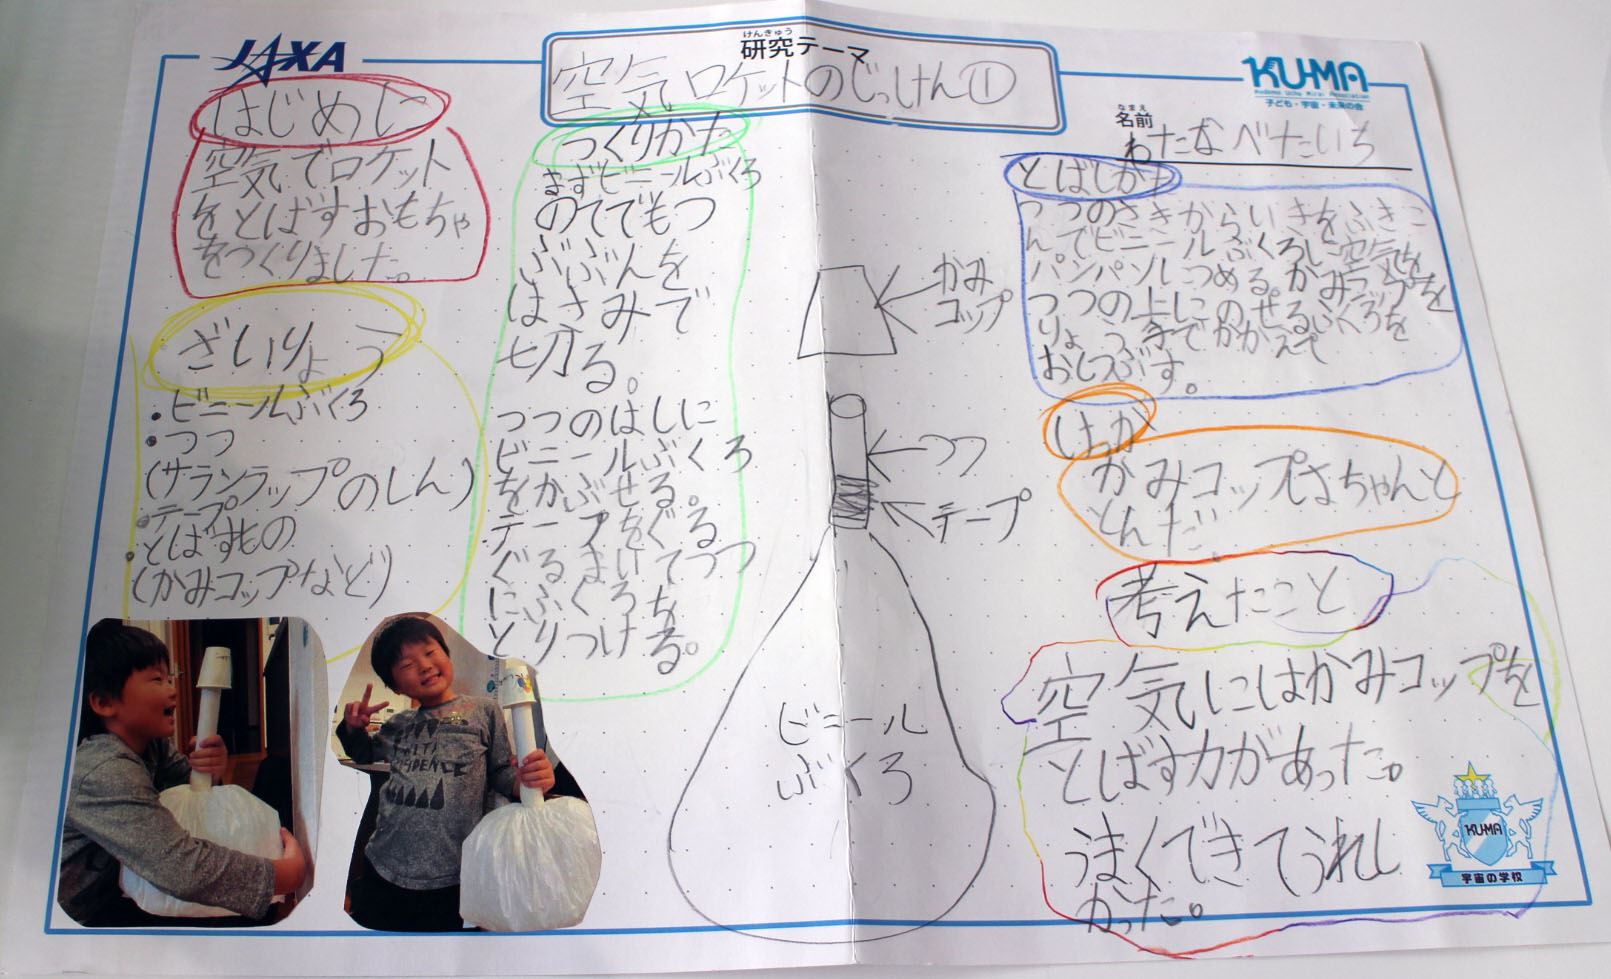 JAXA
けんきゅう
研究テーマ
空気ロケットのじっけん①
KU-MA
Kodomo Uchu Mirai Association
子ども・宇宙・未来の会
なまえ
名前
わたなべたいち
はじめに
空気でロケット
をとばすおもちゃ
をつくりました。
ざいりょう
・ビニールぶくろ
・つつ
(サランラップのしん)
・テープ
・とばすもの
(かみコップなど)
つくりかた
まずビニールぶくろ
のてでもつ
ぶぶんを
はさみで
切る。
つつのはしに
ビニールぶくろ
をかぶせる。
テープをぐる
ぐるまいてつつ
にふくろを
とりつける。
かみ
コップ
つつ
テープ
ビニール
ぶくろ
とばしかた
つつのさきからいきをふきこ
んでビニールぶくろに空気を
パンパンにつめる。かみコップを
つつの上にのせるふくろを
りょう手でかかえて
おしつぶす。
けっか
かみコップはちゃんと
とんだ
考えたこと
空気にはかみコップを
とばす力があった。
うまくできてうれし
かった。
KU-MA
宇宙の学校